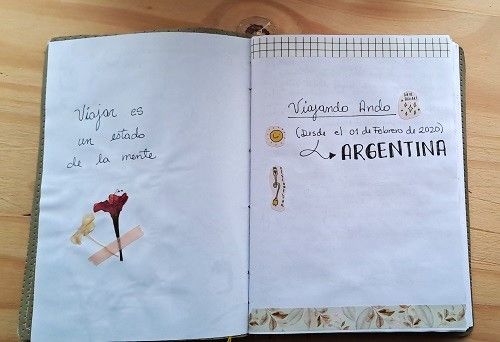 Viajar es
un estado
de la mente
Viajando Ando
(Desde el 01 de Febrero de 2020)
ARGENTINA